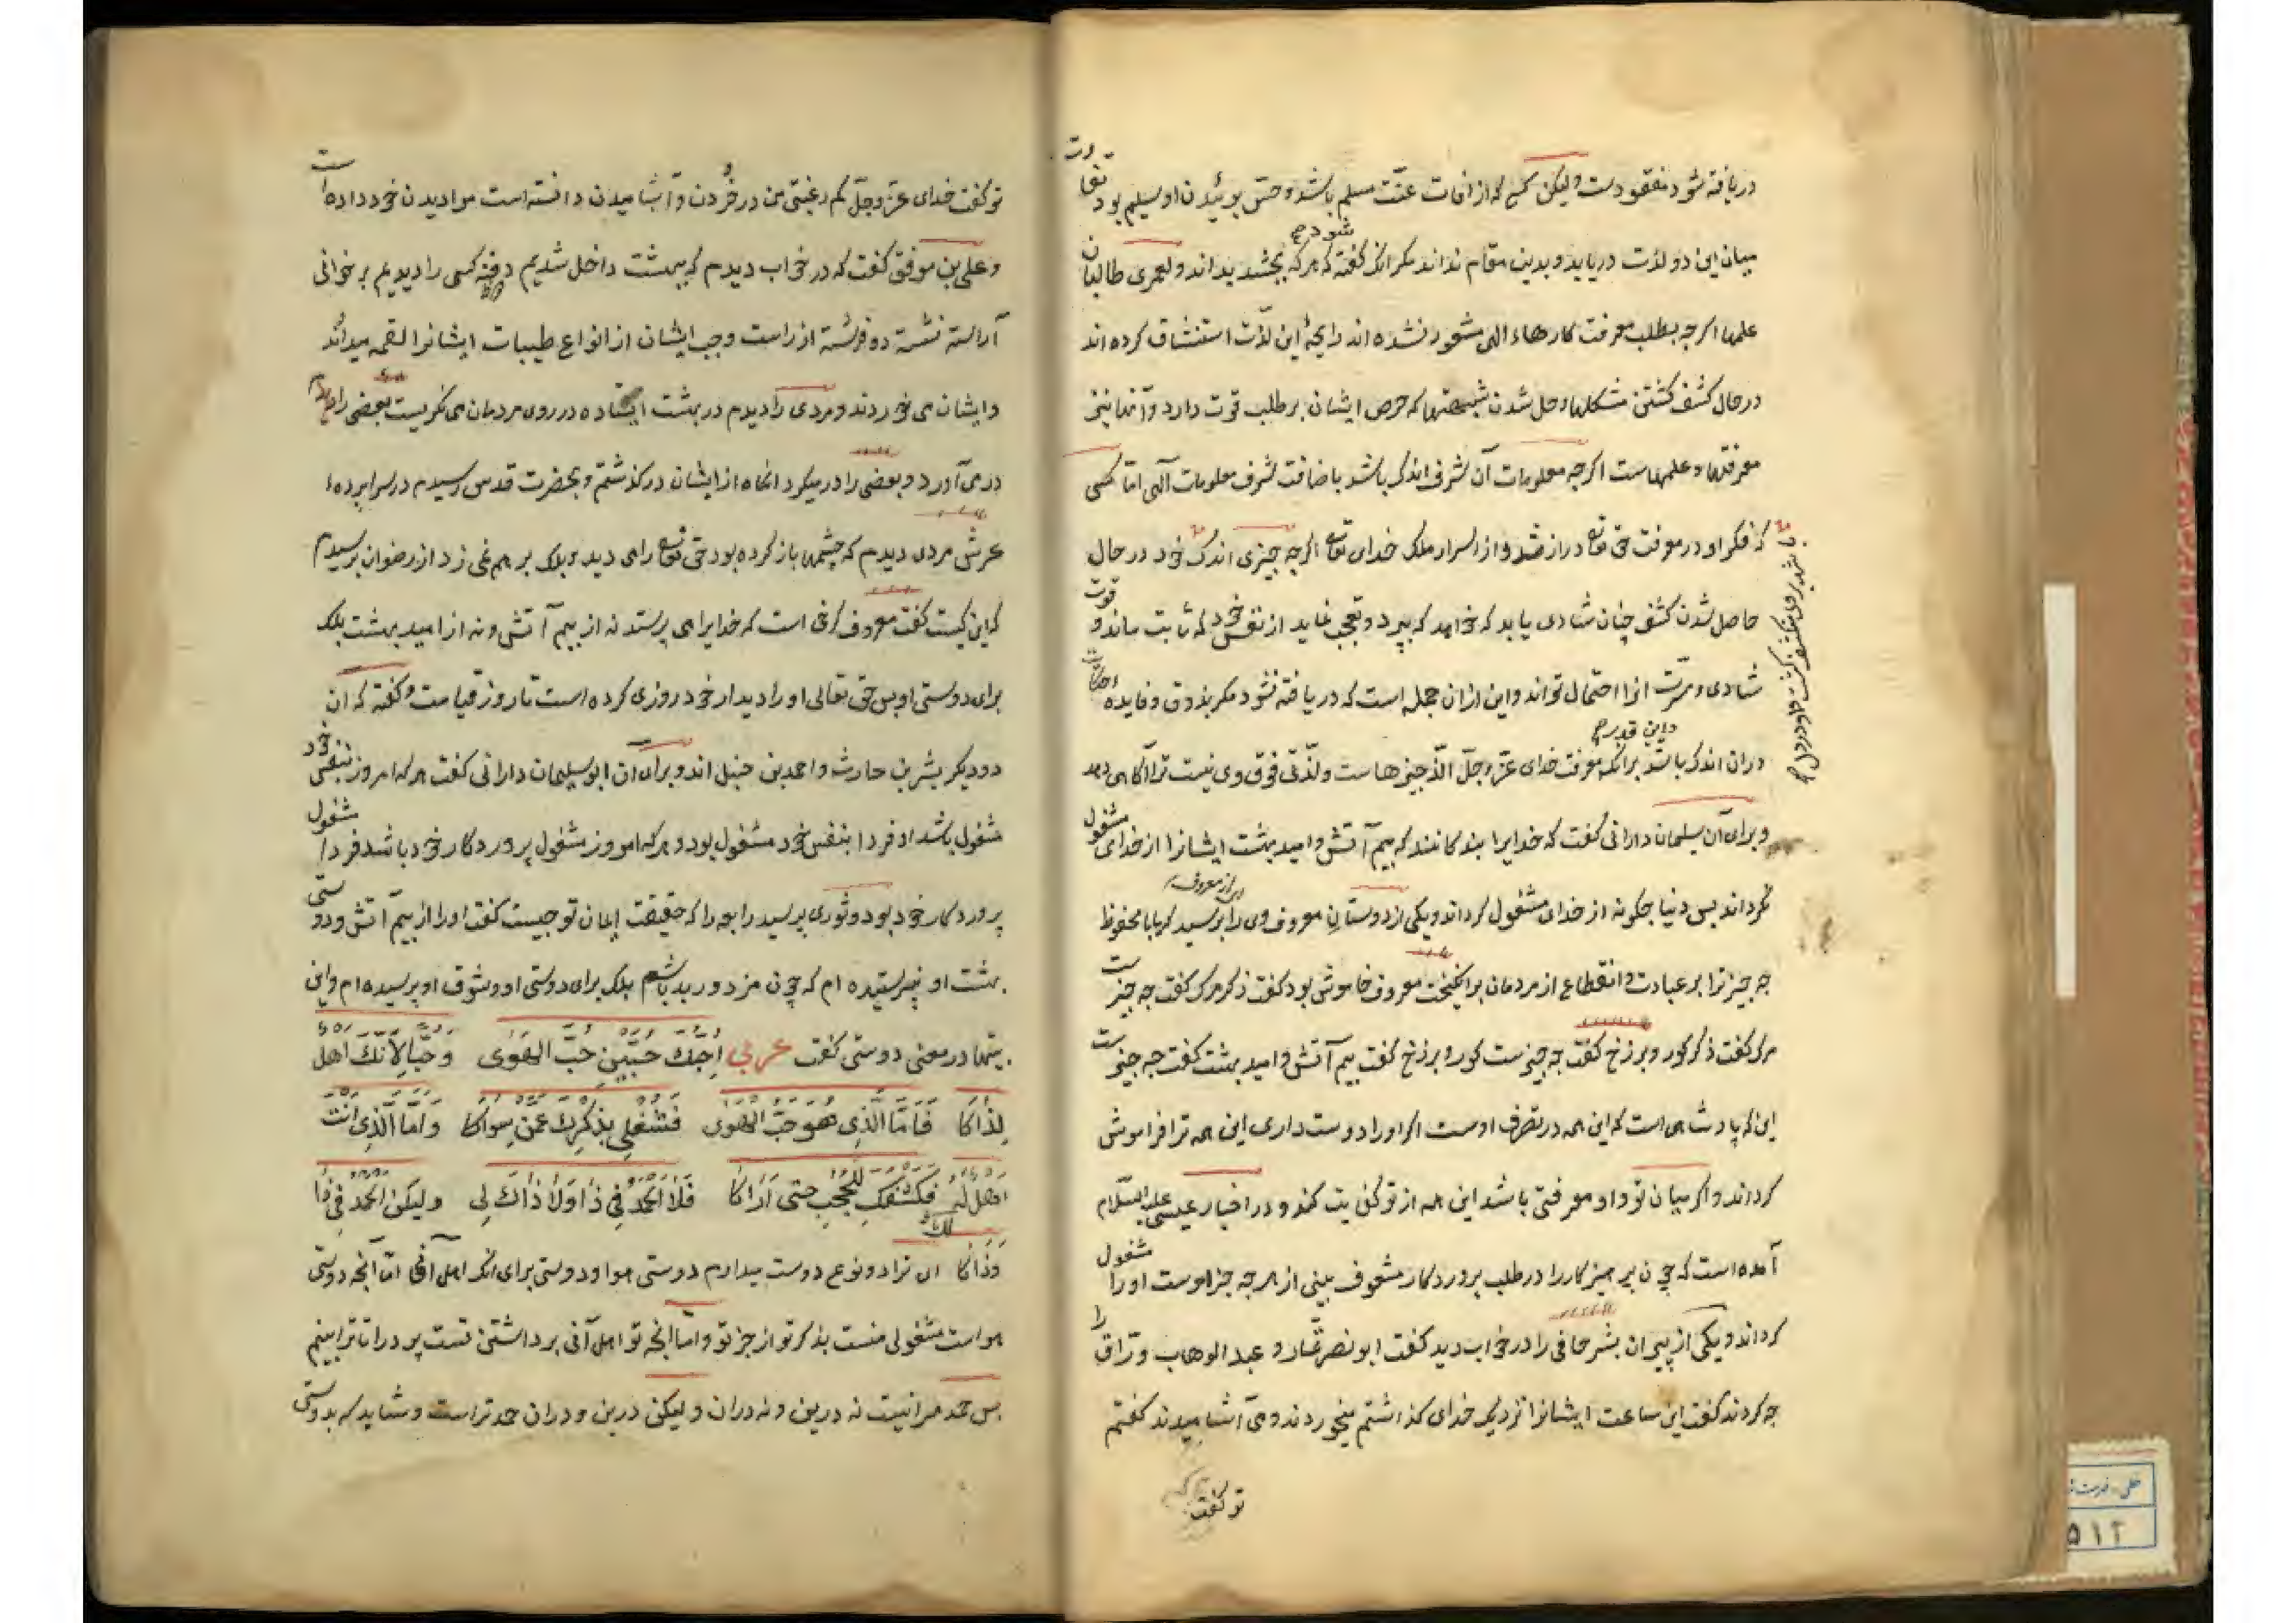 دریافته شود مفقودست ولیکن کسی که از افات عنّت مسلم باشد و حسّ بوئیدن او سلیم بود تفاوت
میان این دو لذت دریابد و بدین مقام نداند مکر انک کفته شود که هرکه بچشد بداند و لعمری طالبان
علمها اکرچه بطلب معرفت کارهاء الهی مشغول نشده اند رایحۀ این لذّت استنشاق کرده اند
در حال کشف کشتن مشکلها و حل شدن شبهتها که حرص ایشان بر طلب قوت دارد و آنها نیز
معرفتها و علمهاست اکرچه معلومات آن شرف اندک باشد باضافت شرف معلومات آلهی امّا کسی
که فکر او در معرفت حق تعالی دراز شد و از اسرار ملک خدای تعالی اکرچه چیزی اندک خود در حال
حاصل شدن کشف چنان شادی یابد که خواهد که بپرد و تعجب نماید از نفس خود که ثابت ماند و قوت
شادی و مسرّت انرا احتمال تواند و این ازان جمله است که دریافته نشود مکر بذوق و فایده
دران اندک باشد و این قدر برانکه معرفت خدای عزّ وجلّ الذّ چیزهاست و لذّتی فوق وی نیست ترا آکاهی دهد
و برای آن سلیمان دارانی کفت که خدایرا بندکانند که بیم آتش و امید بهشت ایشانرا از خدای مشغول
نکرداند پس دنیا چکونه از خدای مشغول کرداند و یکی از دوستان معروف وی را پرسید که یابا محفوظ
چه چیز ترا بر عبادت و انقطاع از مردمان برانکیخت معروف خاموش بود کفت ذکر مرک کفت چه چیزست
مرک کفت ذکر کور و برزخ کفت چه چیزست کور و برزخ کفت بیم آتش و امید بهشت کفت چه چیزست
این که پادشاهی است که این همه در تصرف اوست اکر او را دوست داری این همه ترا فراموش
کرداند و اکر میان تو و او معرفتی باشد این همه از تو کفایت کند و در اخبار عیسی علیه السّلام
آمده است که چون پرهیزکار را در طلب پروردکار مشعوف بینی از هرچه جز اوست او را مشغول
کرداند و یکی از پیران بشر حافی را در خواب دید کفت ابو نصر تمّار و عبد الوهاب ورّاق را
چه کردند کفت این ساعت ایشانرا نزدیک خدای کذاشتم میخوردند و می آشامیدند کفتم
تو کفت
تو کفت خدای عزّ وجلّ کم رغبتی من در خُردن و آشامیدن دانسته است مرا دیدن خود داده است
و علی بن موفق کفت که در خواب دیدم که ببهشت داخل شدیم کسی را دیدیم بر خوانی
آراسته نشسته دو فرشته از راست و چپ ایشان از انواع طیبات ایشانرا لقمه میدادند
و ایشان می خوردند و مردی را دیدم در بهشت ایستاده در روی مردمان می نکریست بعضی را
در می آورد و بعضی را رد میکرد انکاه از ایشان درکذشتم و بحضرت قدس رسیدم در سراپرده
عرش مردی دیدم که چشمها باز کرده بود حق تعالی را می دید و پلک بر هم نمی زد از رضوان پرسیدم
که این کیست کفت معروف کرخی است که خدایرا می پرستد نه از بیم آتش و نه از امید بهشت بلک
برای دوستی او پس حق تعالی او را دیدار خود روزی کرده است تا روز قیامت و کفته که ان
دو دیکر بشر بن حارث و احمد بن حنبل اند و برای ان ابو سلیمان دارانی کفت هر که امروز بنفس خود
مشغول باشد او فردا بنفس خود مشغول بود و هرکه امروز مشغول پروردکار خود باشد فردا مشغول
پروردکار خود بود و ثوری پرسید رابعه را که حقیقت ایمان تو چیست کفت او را از بیم آتش و دوستی
بهشت او نپرستیده ام که چون مزدور بد باشم بلک برای دوستی او و شوق او پرسیده ام و این
بیتها در معنی دوستی کفت عربی اُحِبُّكَ حُبَّيْنِ حُبَّ الهَوَى وَحُبًّا لِاَنَّكَ اَهل
لِذَاكَا فَاَمَّا الَّذِی هُوَ حُبُّ الهَوَى فَشُغْلِی بِذِكْرِكَ عَمَّنْ سِوَاكَا وَاَمَّا الَّذِی اَنْتَ
اَهْلٌ لَهُ فَكَشْفُكَ لِلْحُجْبِ حَتّی اَرَاكَا فَلَا الْحَمْدُ فِی ذَا وَلَا ذَاكَ لِی وَلٰكِنْ لَكَ الْحَمْدُ فِی ذَا
وَذَاكَا ای ترا دو نوع دوست میدارم دوستی هوا و دوستی برای انک اهل آنی امّا آنچه دوستی
هواست مشغولی منست بذکر تو از جز تو و امّا انچه تو اهل آنی برداشتن تست پردها را تا ترا بینم
پس حمد مرا نیست نه درین و نه دران ولیکن درین و دران حمد تراست و شاید که بدوستی